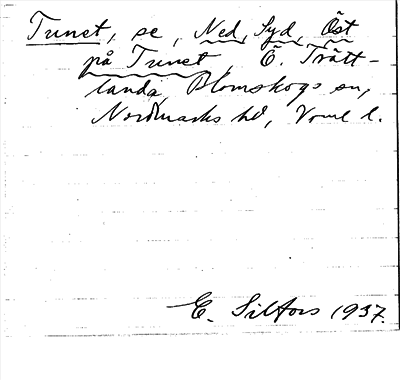 Tunet, se, Ned, Syd, Öst
på Tunet, Ö. Trätt-
landa, Blomskogs sn,
Nordmarks hd, Vrml l.
E. Silfors 1937.